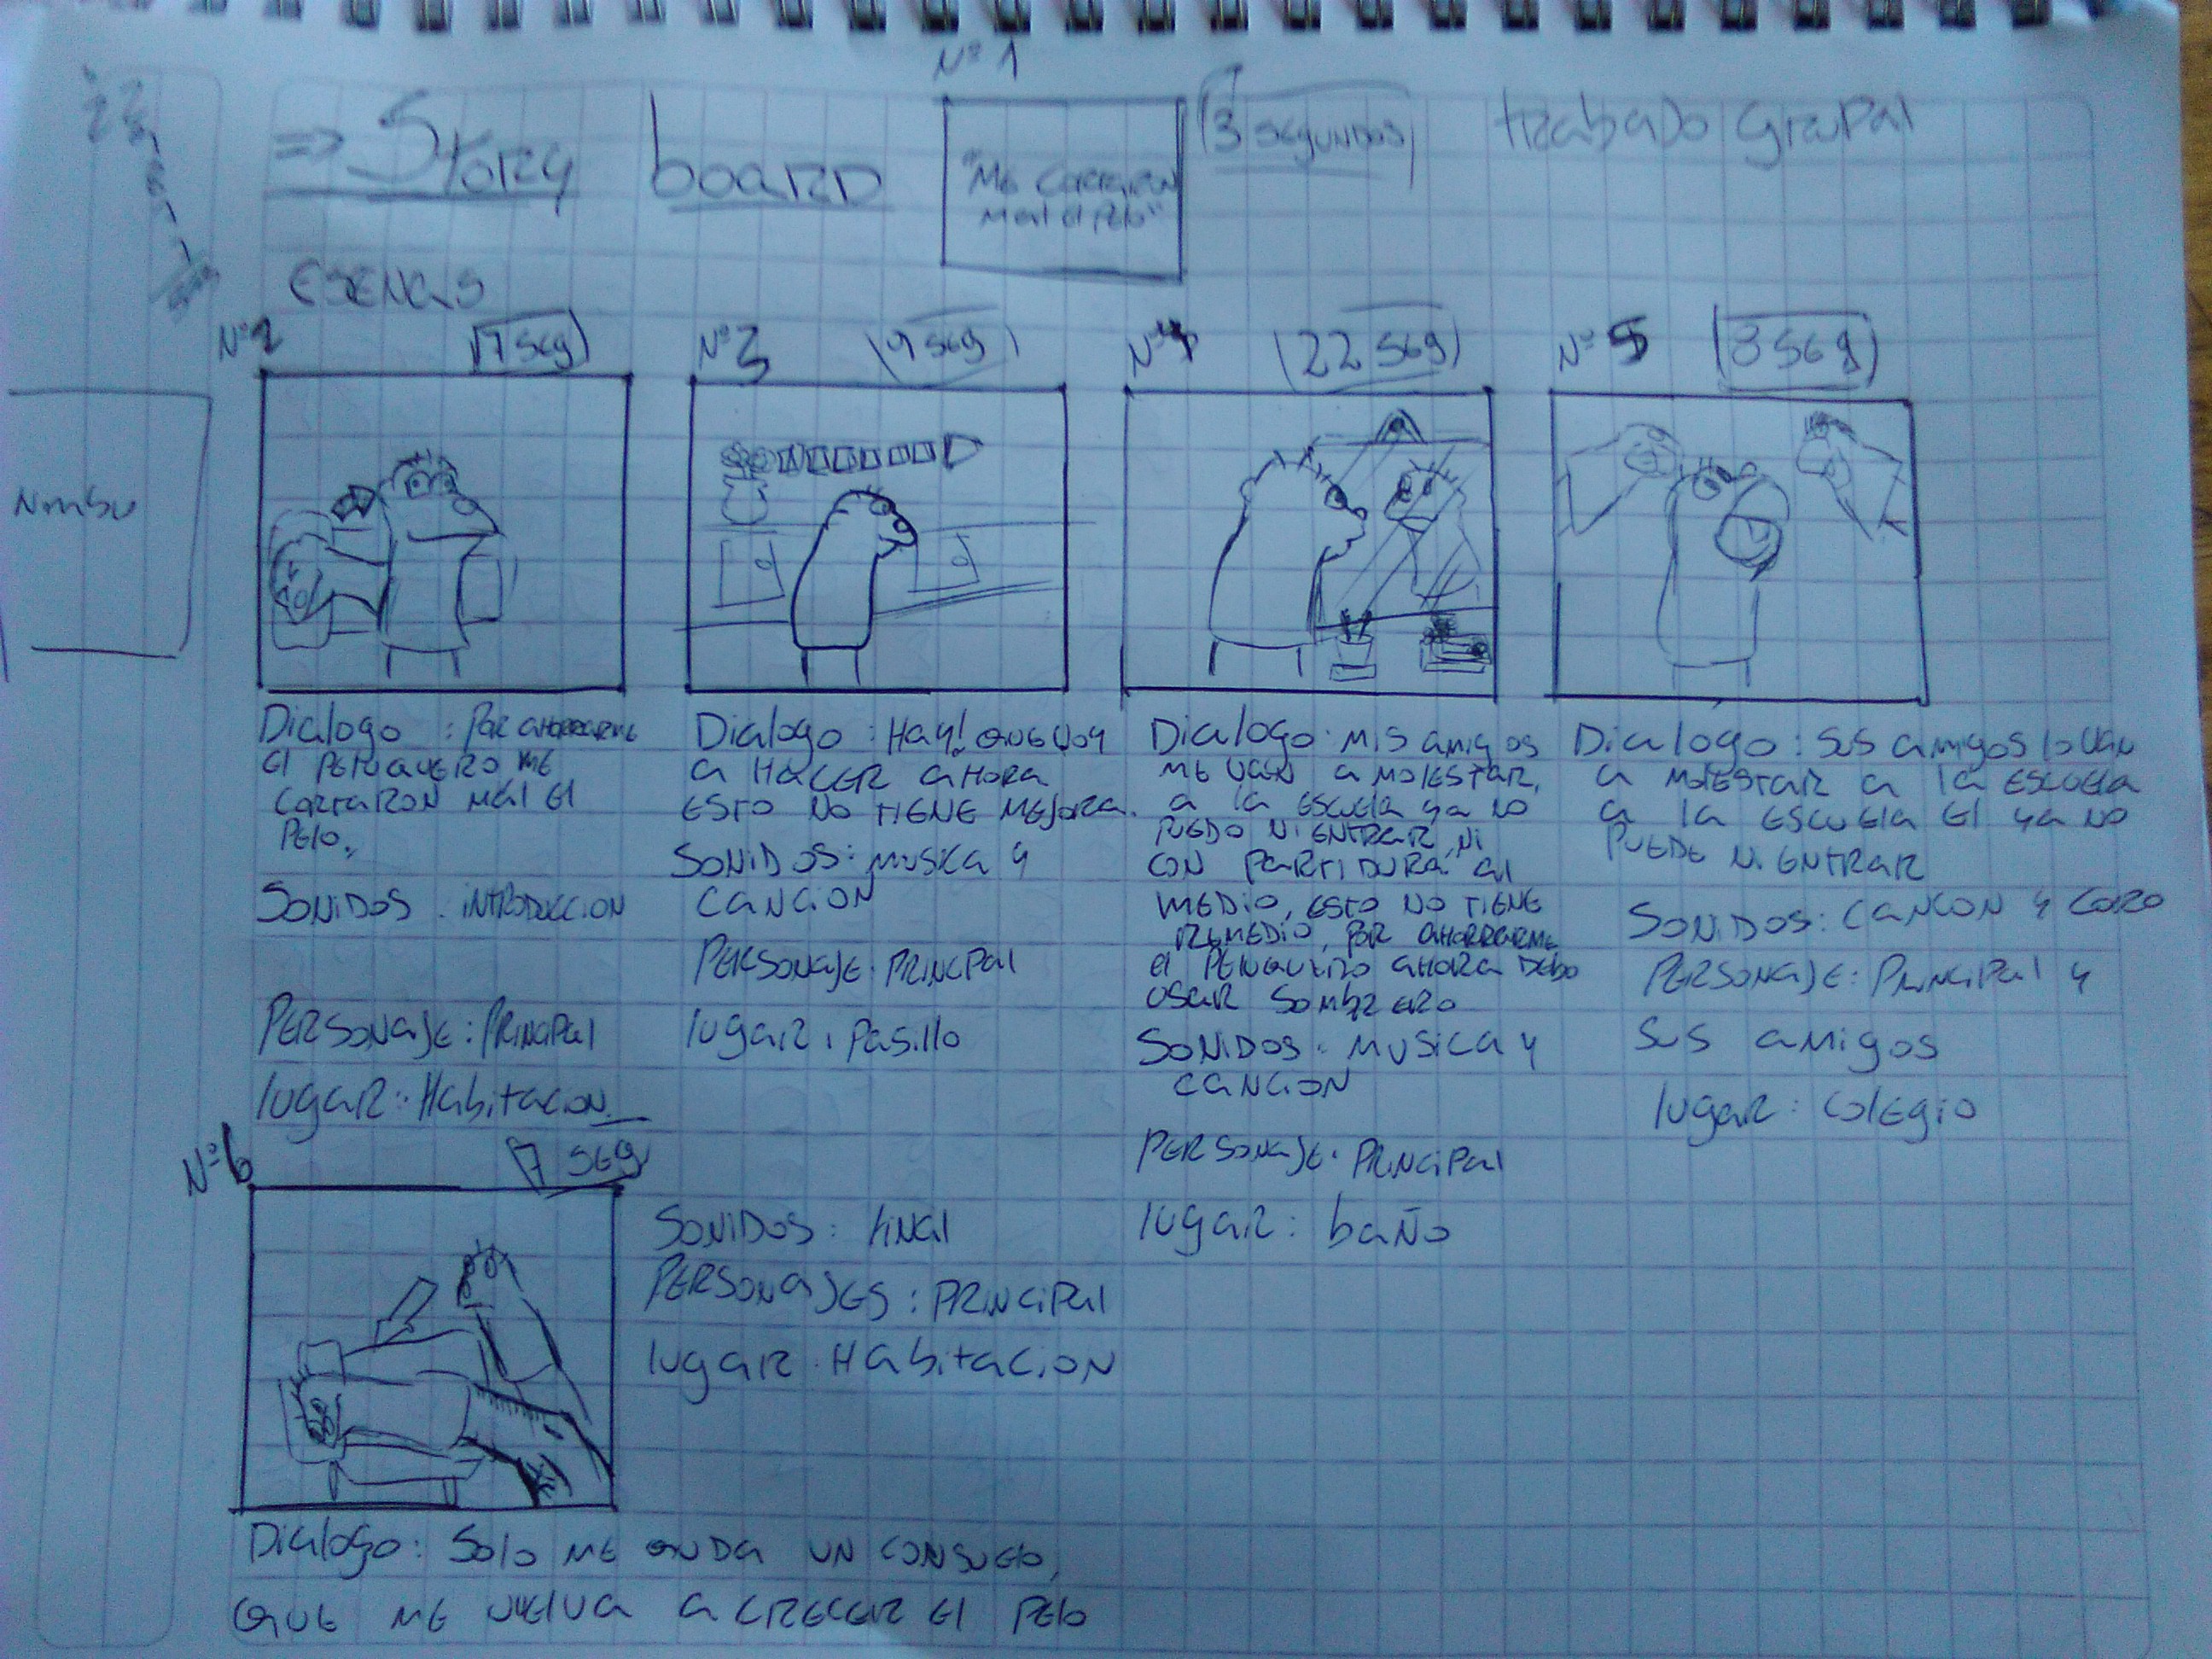 Nº 1
⇒ Story board
"Me cortaron
mal el pelo"
3 segundos
trabado grupal
ESENAS
Nº2
7 seg
Nº3
9 seg
Nº4
22 seg
Nº 5
8 seg
Dialogo : Por ahorrarme
el peluquero me
cortaron mal el
pelo.
Sonidos : introduccion
Personaje : Principal
lugar : Habitacion
Dialogo : Hay! que voy
a hacer ahora
esto no tiene mejora.
Sonidos : musica y
cancion
Personaje : Principal
lugar : Pasillo
Dialogo : mis amigos
me van a molestar,
a la escuela ya no
puedo ni entrar, ni
con partidura al
medio, esto no tiene
remedio, por ahorrarme
el peluquero ahora debo
usar sombrero
Sonidos : musica y
cancion
Personaje : Principal
lugar : baño
Dialogo : sus amigos lo van
a molestar a la escuela
a la escuela el ya no
puede ni entrar
Sonidos : cancon y coro
Personaje : Principal y
sus amigos
lugar : colegio
Nº6
7 seg
Sonidos : final
Personajes : Principal
lugar : Habitacion
Dialogo : Solo me queda un consuelo,
que me vuelva a crecer el pelo